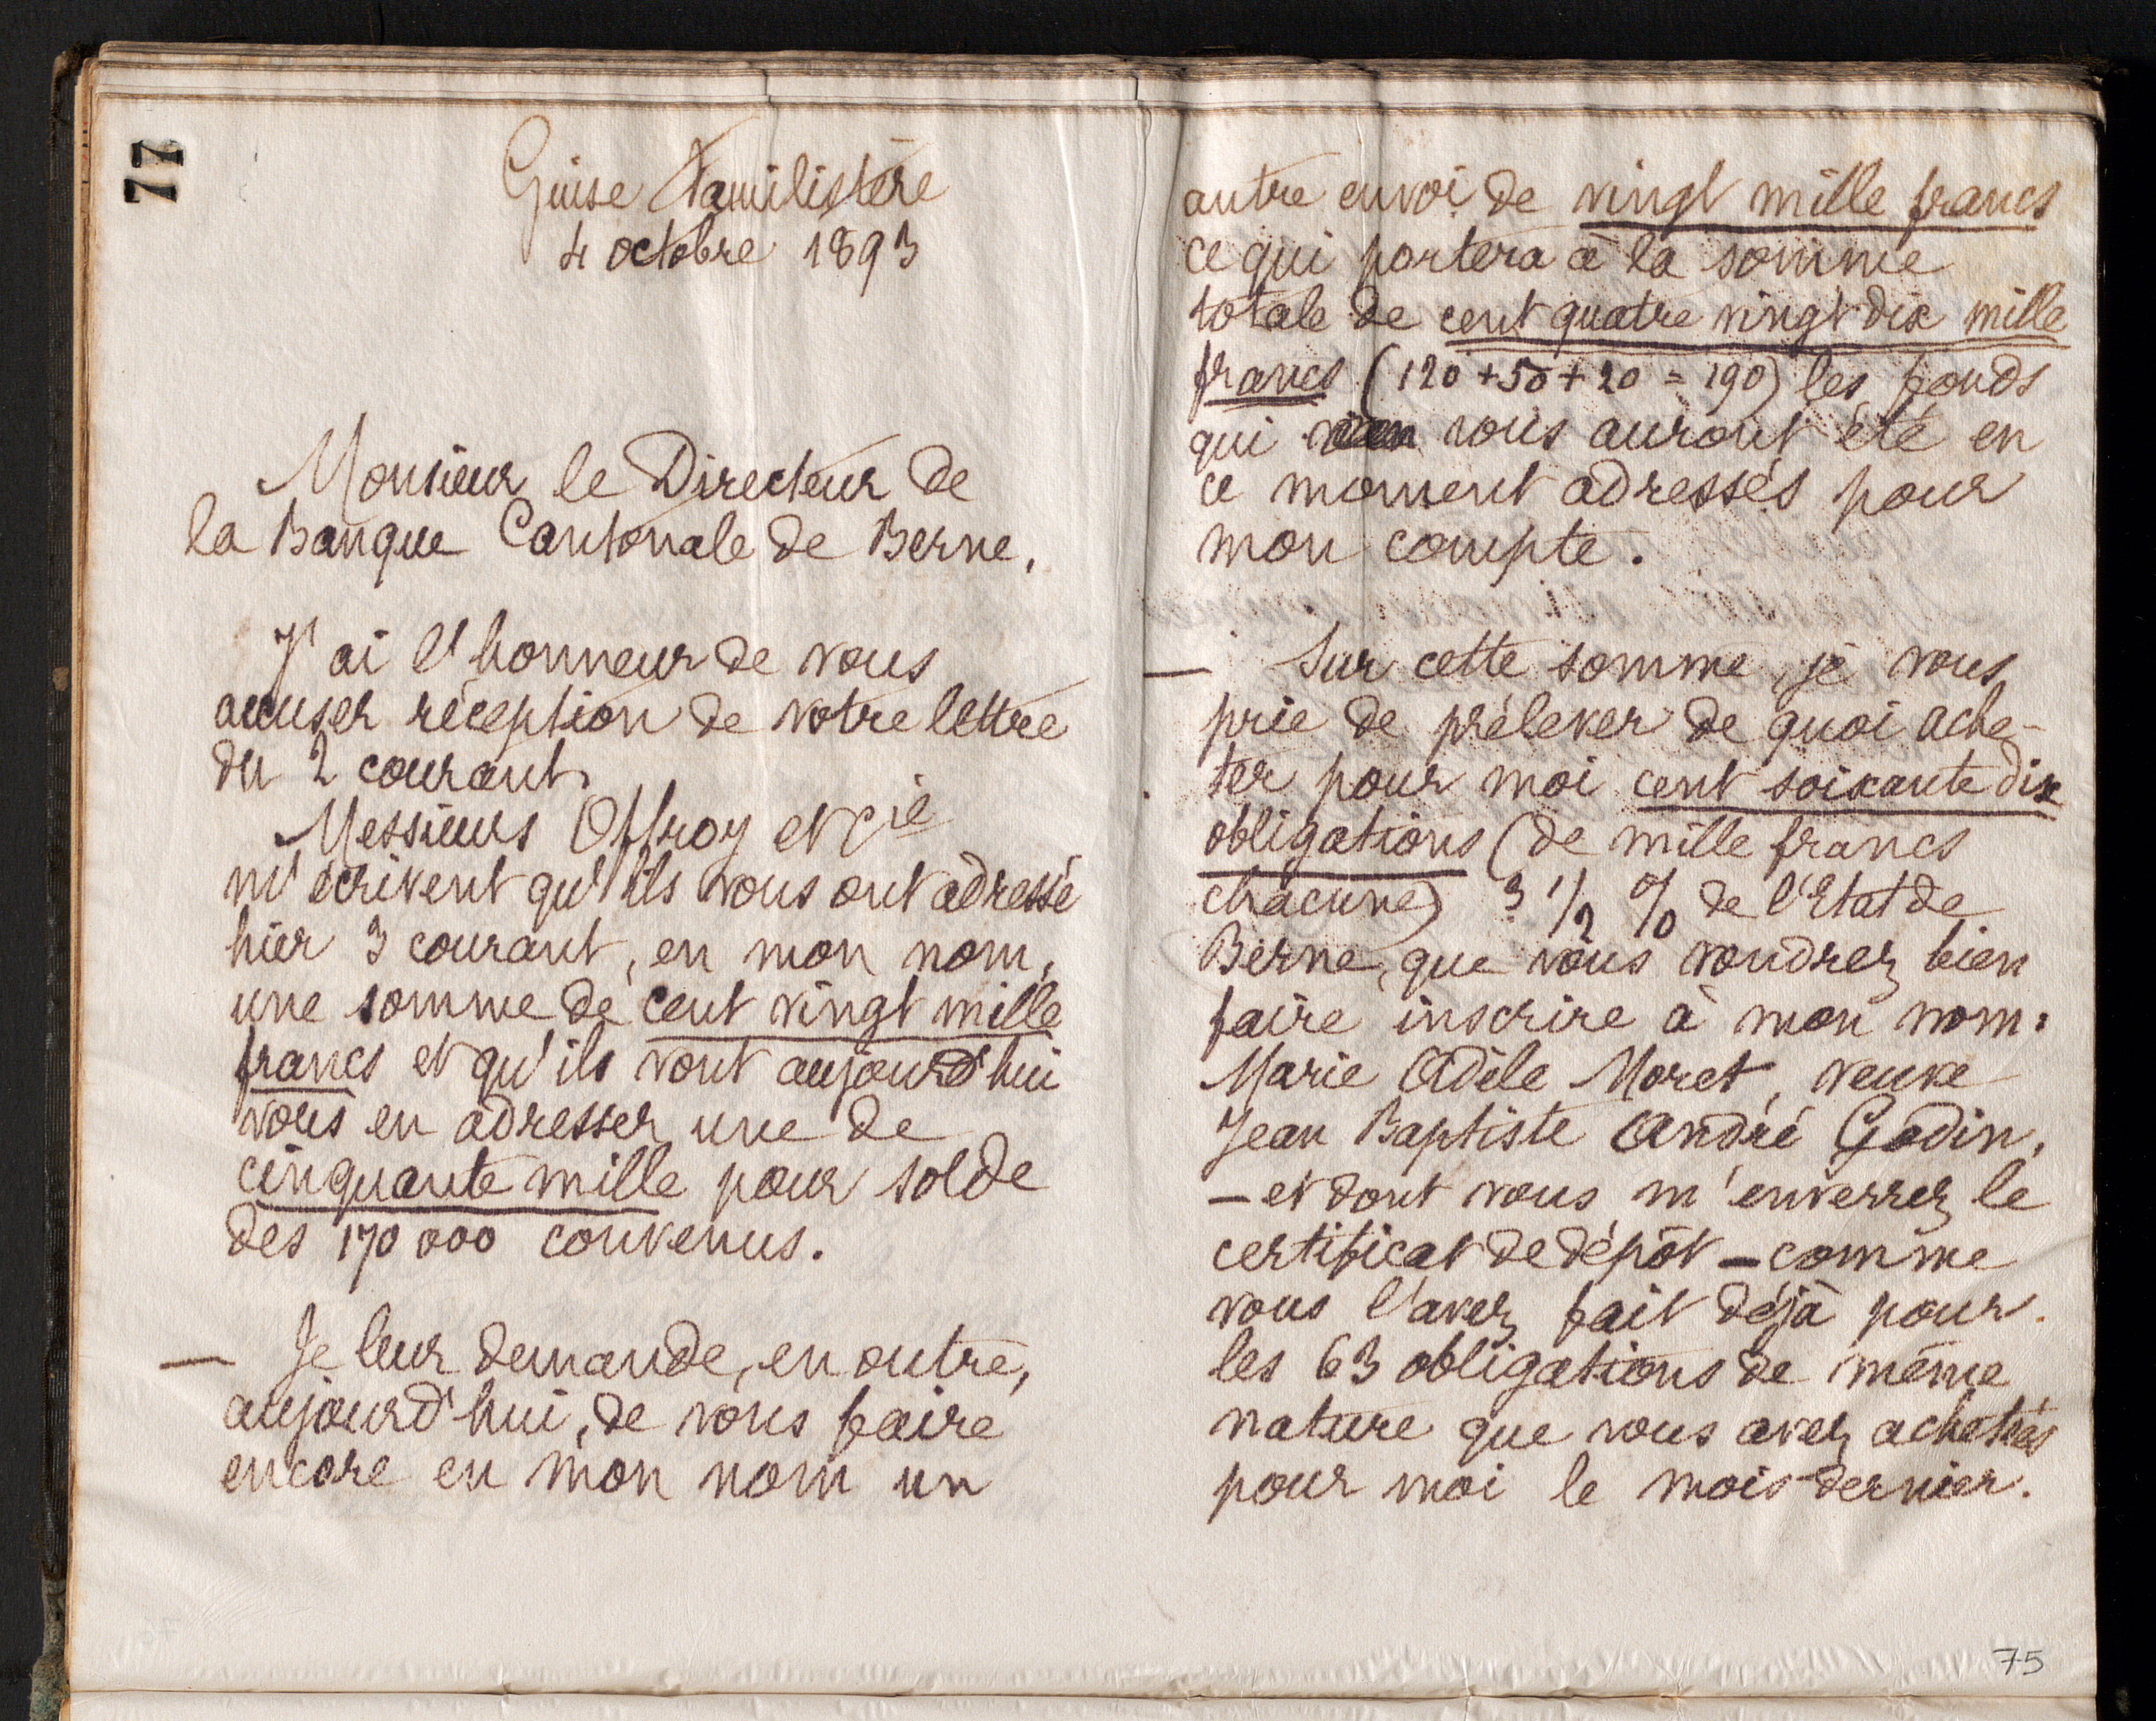 77
Guise Familistère
4 octobre 1893
Monsieur le Directeur de
la Banque Cantonale de Berne,
J'ai l'honneur de vous
accuser réception de votre lettre
du 2 courant.
Messieurs Offroy et Cie
m'écrivent qu'ils vous ont adressé
hier 3 courant, en mon nom,
une somme de cent vingt mille
francs et qu'ils vont aujourd'hui
vous en adresser une de
cinquante mille pour solde
des 170 000 convenus.
— Je leur demande, en outre,
aujourd'hui, de vous faire
encore en mon nom un
autre envoi de vingt mille francs
ce qui portera à la somme
totale de cent quatre vingt dix mille
francs (120 + 50 + 20 = 190) les fonds
qui vous auront été en
ce moment adressés pour
mon compte.
— Sur cette somme, je vous
prie de prélever de quoi ache-
ter pour moi cent soixante dix
obligations (de mille francs
chacune) 3 1/2 % de l'Etat de
Berne, que vous voudrez bien
faire inscrire à mon nom:
Marie Adèle Moret, veuve
Jean Baptiste André Godin,
— et dont vous m'enverrez le
certificat de dépôt — comme
vous l'avez fait déjà pour
les 63 obligations de même
nature que vous avez achetées
pour moi le mois dernier.
75